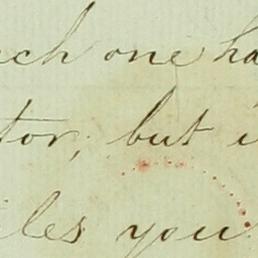 ach one ha
tor, but i
iles you